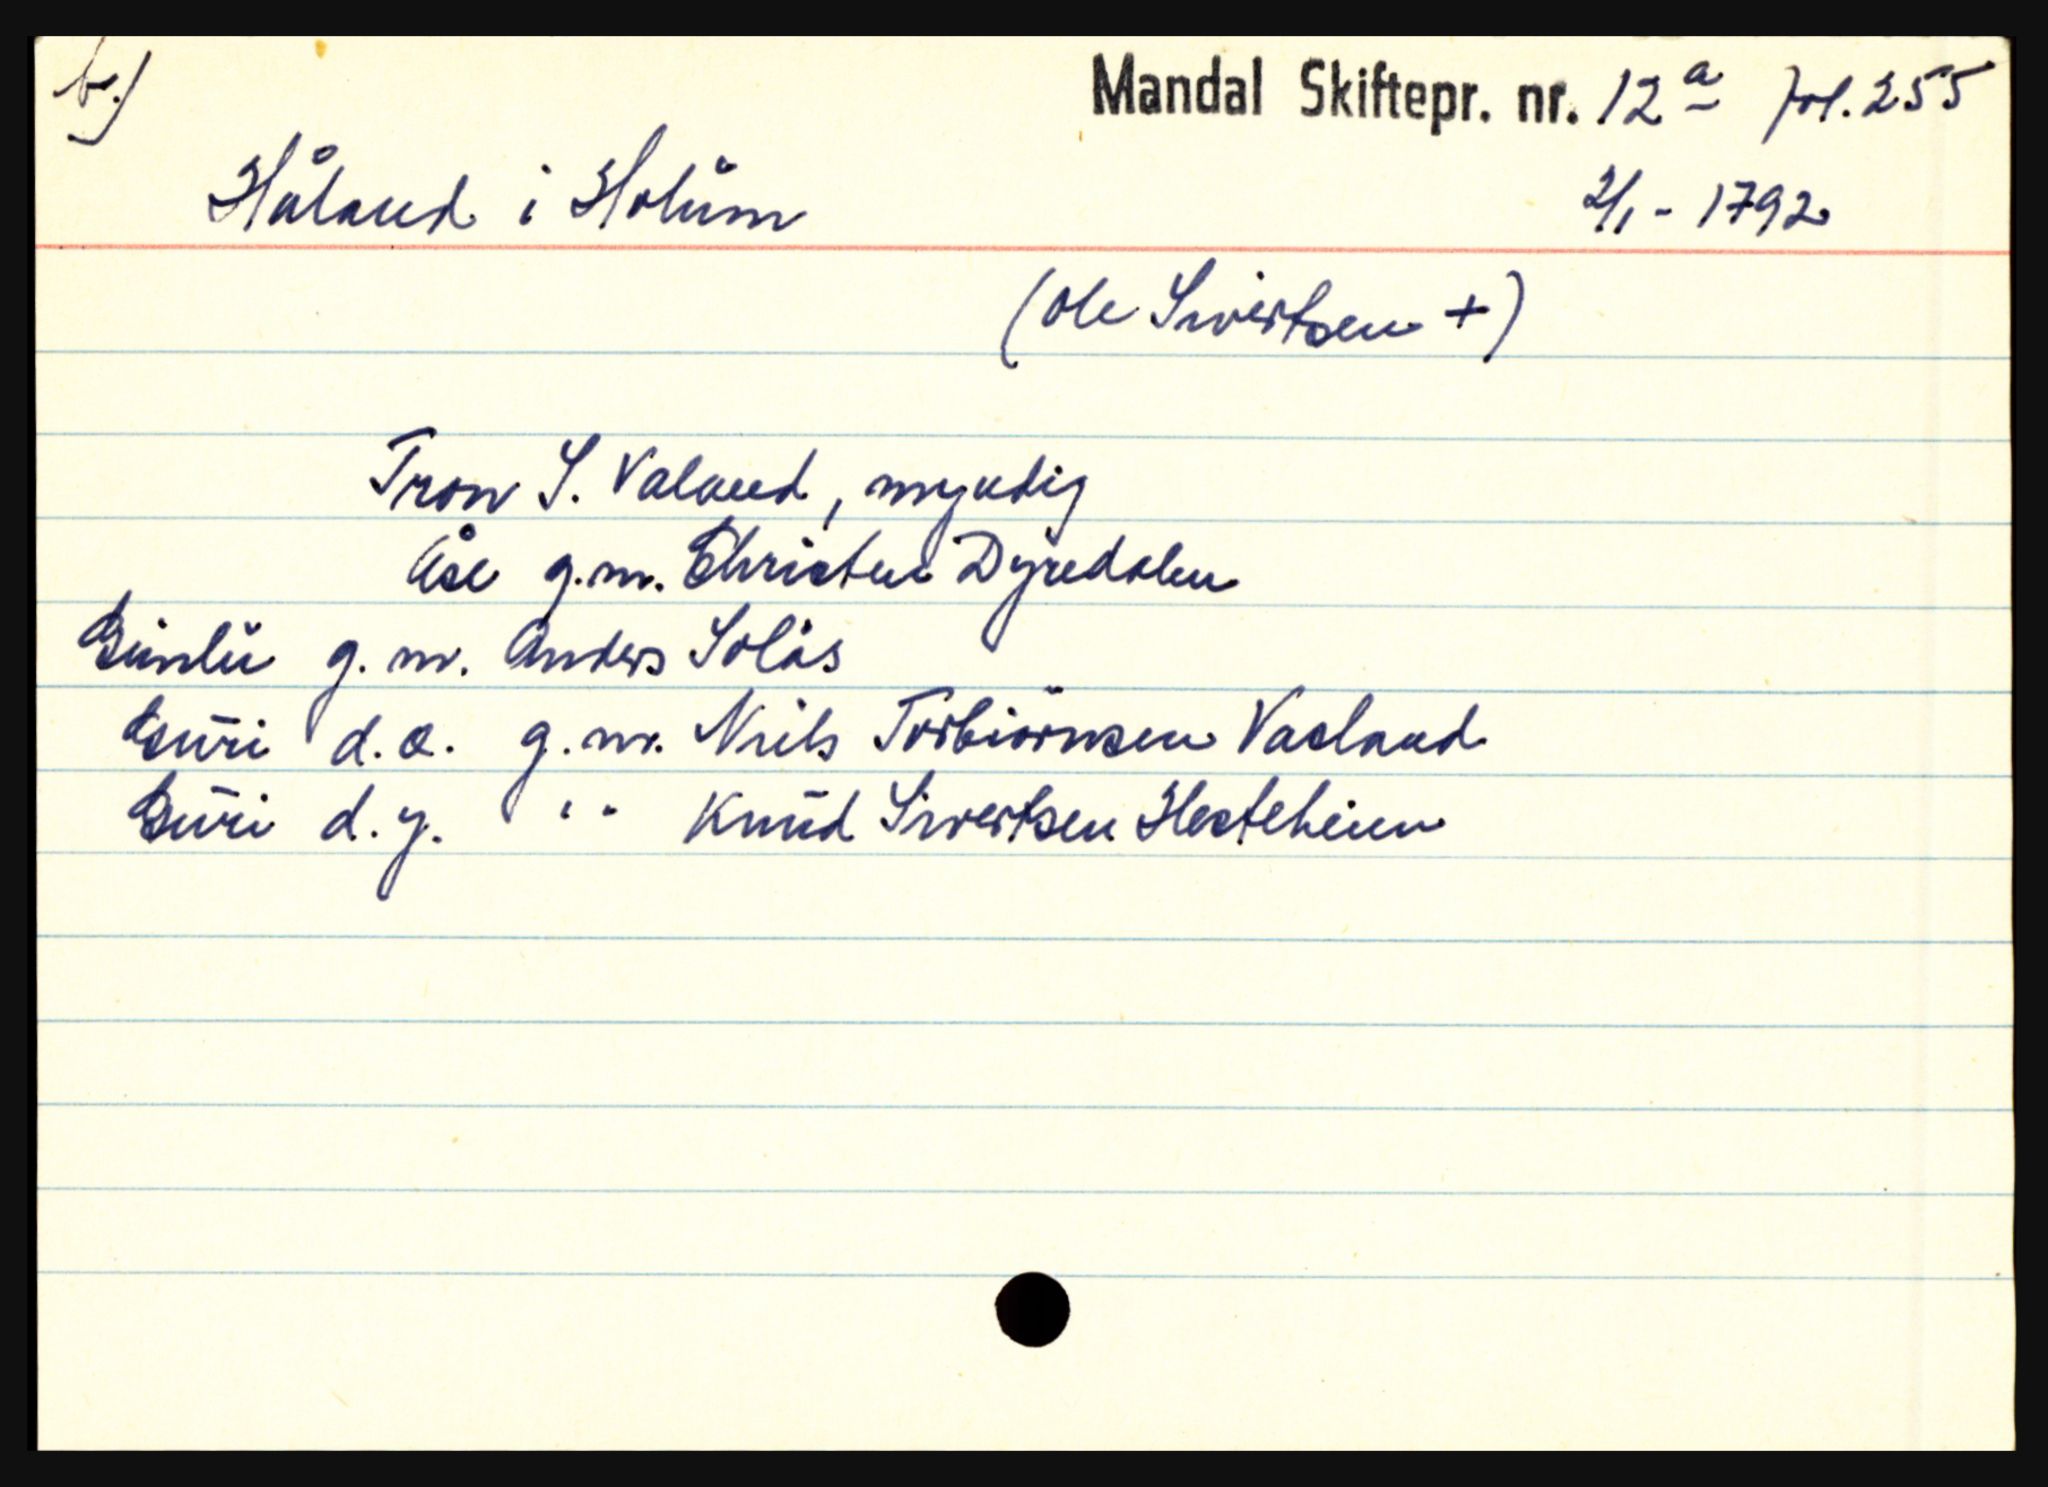 b.)
Mandal Skiftepr. nr. 12a fol. 255
Håland i Holum
2/1 - 1792
(Ole Sivertsen +)
Tron S. Valand, myndig
Åse g.m. Christen Dyredalen
Gunlu g.m. Anders Solås
Guri d.e. g.m. Niels Torbiörnsen Vasland
Guri d.y. " Knud Sivertsen Hesteheien